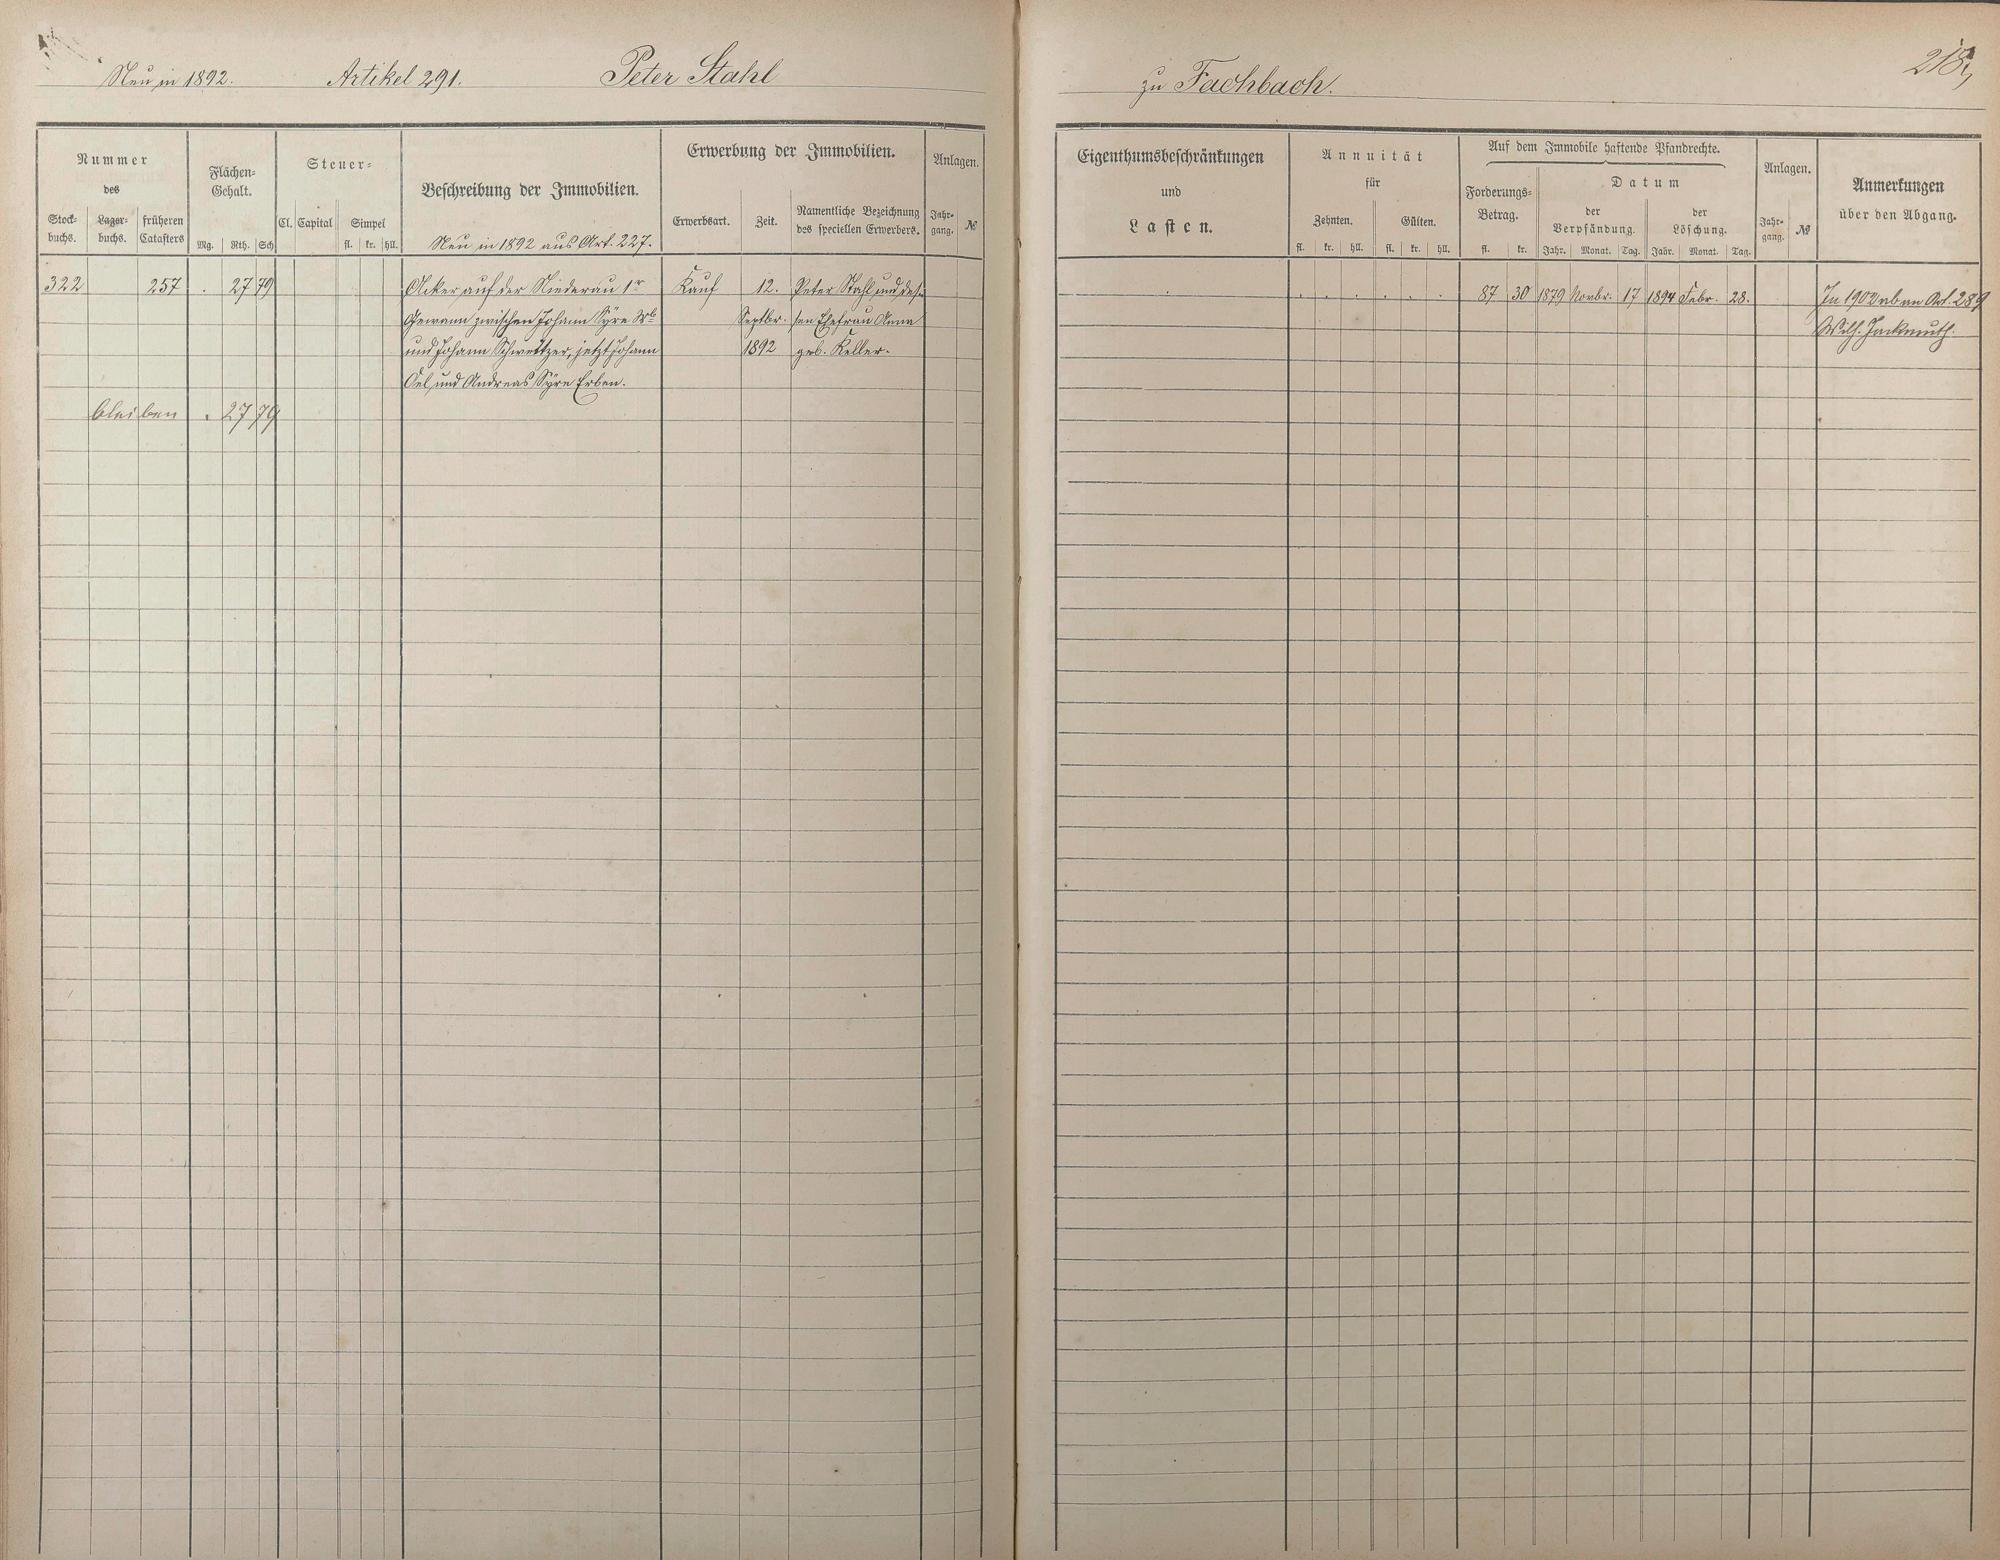 Neu in 1892. Artikel 291. Peter Stahl
zu Fachbach.
218
Nummer
des
Stock-
buchs.
Lager-
buchs.
früheren
Catasters
Flächen-
Gehalt.
Mg. Rth. Sch
Steuer-
Cl. Capital Simpel
fl. kr. hll.
Beschreibung der Immobilien.
Neu in 1892 aus Art. 227.
Erwerbung der Immobilien.
Erwerbsart. Zeit.
Namentliche Bezeichnung
des speciellen Erwerbers.
Anlagen.
Jahr-
gang. №
322 257 . 27 79 Acker auf der Niederau 1r Kauf 12. Peter Stahl und des-
Gewann zwischen Johann Syre Wb Septbr. sen Ehefrau Anna
und Johann Schweitzer, jetzt Johann 1892 geb. Keller.
Oel und Andreas Syre Erben.
bleiben . 27 79
Eigenthumsbeschränkungen
und
Lasten.
Annuität
für
Zehnten. Gülten.
fl. kr. hll. fl. kr. hll.
Auf dem Immobile haftende Pfandrechte.
Forderungs-
Betrag.
fl. kr.
Datum
der
Verpfändung.
Jahr. Monat. Tag.
der
Löschung.
Jahr. Monat. Tag.
Anlagen.
Jahr-
gang. №
Anmerkungen
über den Abgang.
. . . . . . . 87 30 1879 Novbr. 17 1894 Febr. 28. In 1902 ab an Art. 289
Wilh. Jackmuth.